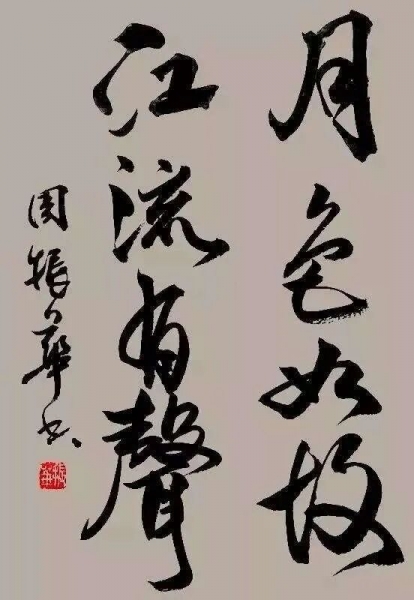 月色如故
江流有聲
周振華书